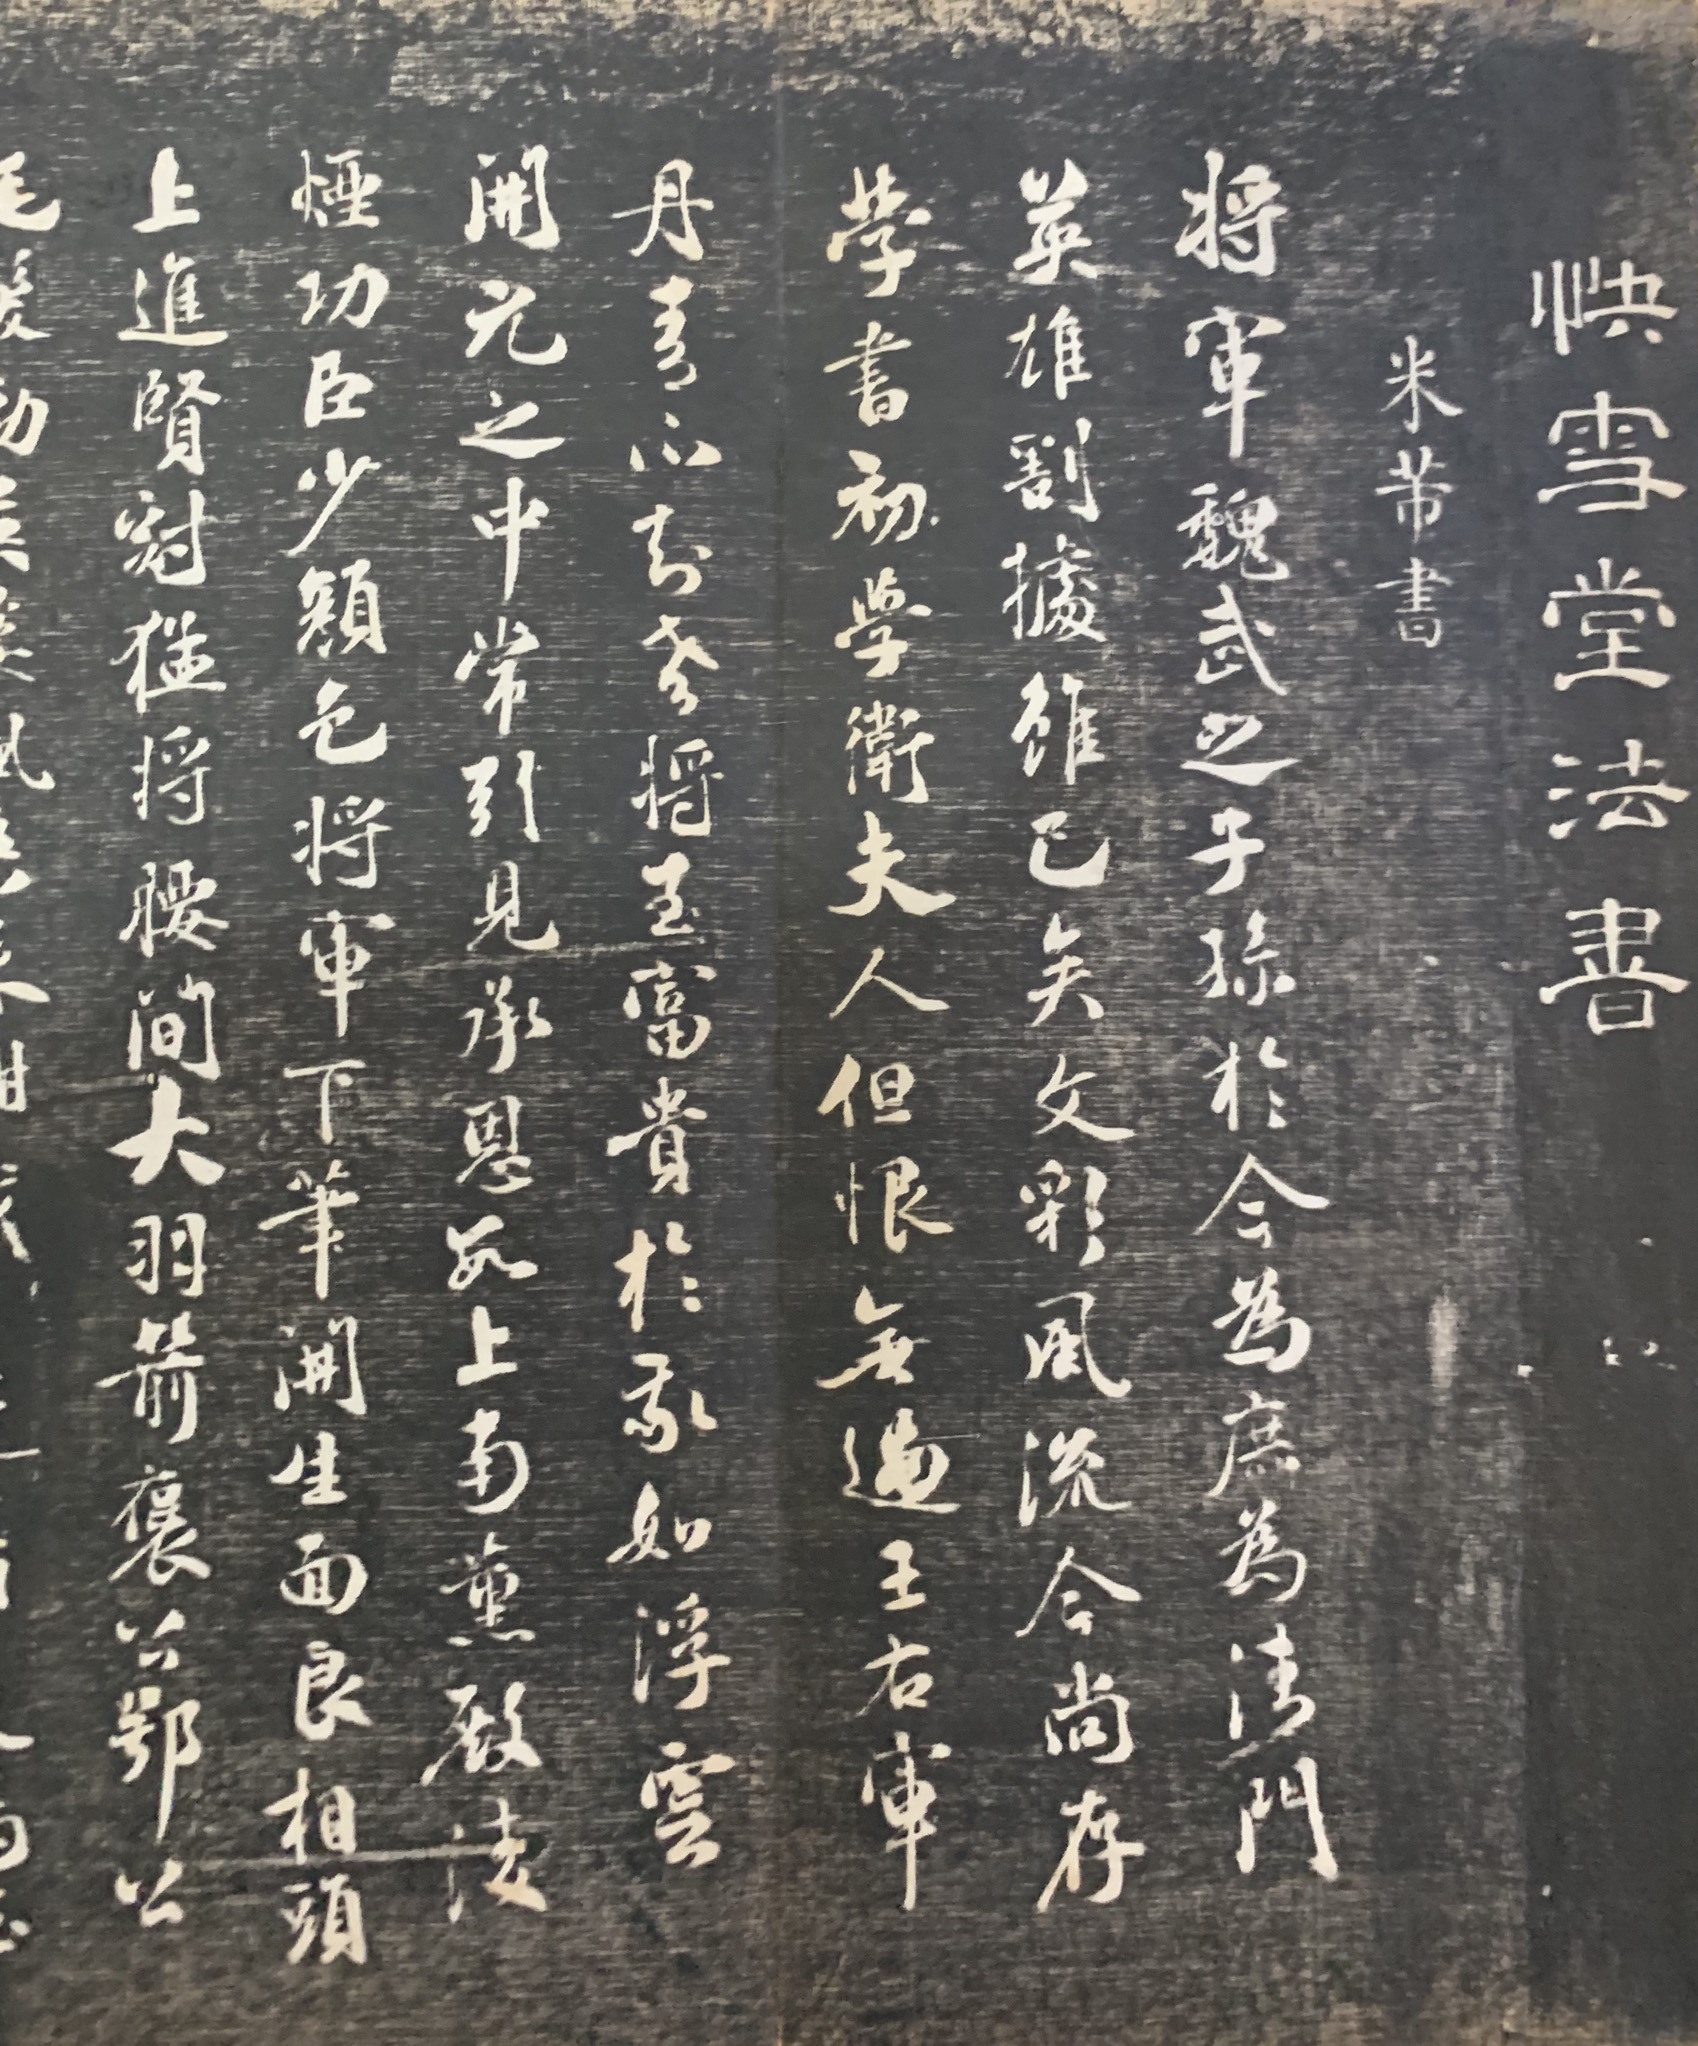 快雪堂法書
米芾書
将軍魏武之子孫於今為庶為清門
英雄割據雖已矣文彩風流今尚存
學書初學衛夫人但恨無過王右軍
丹青不知老將至富貴於我如浮雲
開元之中常引見承恩數上南薰殿凌
煙功臣少顏色将軍下筆開生面良相頭
上進賢冠猛将腰間大羽箭褒公鄂公
毛髮動英姿